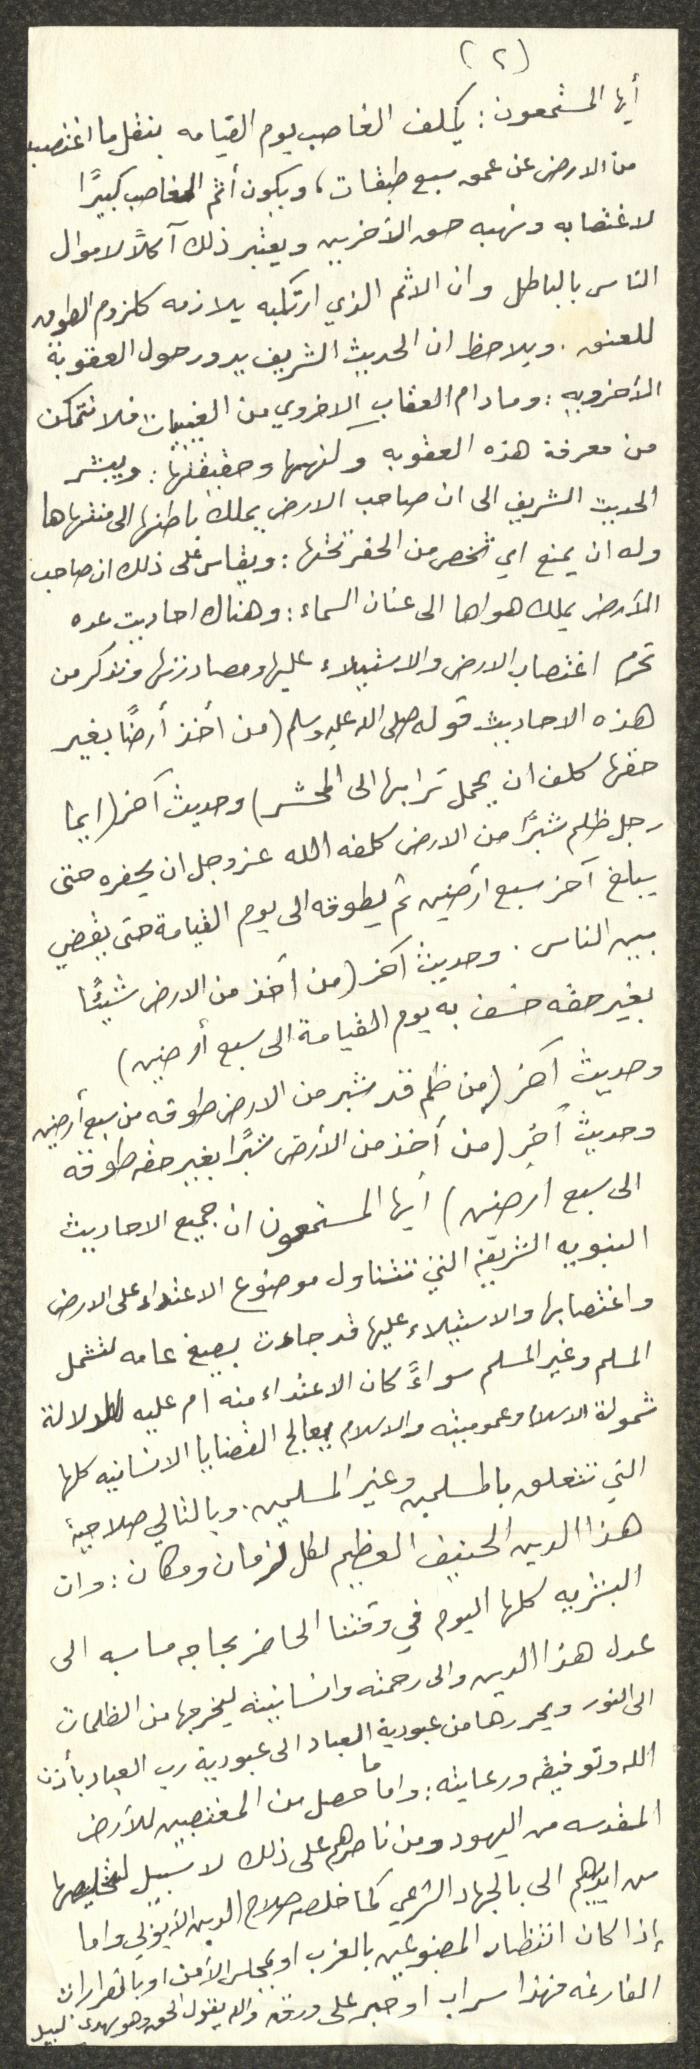 (٢)
أيها المستمعون: يكلف الغاصب يوم القيامه بنقل ما اغتصبه
من الارض عن عمق سبع طبقات، ويكون أثم الغاصب كبيرًا
لاغتصابه ونهبه حق الآخرين ويعتبر ذلك آكلاً لاموال
الناس بالباطل وان الاثم الذي ارتكبه يلازمه كلزوم الطوق
للعنق. ويلاحظ ان الحديث الشريف يدور حول العقوبة
الأخرويه: وما دام العقاب الاخروي من الغيبيات فلا نتمكن
من معرفة هذه العقوبه وكنهها وحقيقتها: ويشر
الحديث الشريف الى ان صاحب الارض يملك باطنها الى منتهاها
وله ان يمنع اي شخص من الحفر تحتها: ويقاس على ذلك ان صاحب
الأرض يملك هواها الى عنان السماء: وهناك احاديث عده
تحرم اغتصاب الارض والاستيلاء عليها ومصادرتها ونذكر من
هذه الاحاديث قوله صلى الله عليه وسلم (من أخذ أرضًا بغير
حقها كلف ان يحمل ترابها الى المحشر) وحديث آخر (ايما
رجل ظلم شبرًا من الارض كلفه الله عز وجل ان يحفره حتى
يبلغ آخر سبع أرضين ثم يطوقه الى يوم القيامة حتى يقضي
بين الناس. وحديث آخر (من أخذ من الارض شيئًا
بغير حقه خسف به يوم القيامة الى سبع أرضين)
وحديث آخر (من ظلم قد شبر من الارض طوقه من سبع أرضين
وحديث آخر (من أخذ من الأرض شبرًا بغير حقه طوقه
الى سبع أرضين) أيها المستمعون ان جميع الاحاديث
النبويه الشريفه التي تتناول موضوع الاعتداء على الارض
واغتصابها والاستيلاء عليها قد جاءت بصيغ عامه لتشمل
المسلم وغير المسلم سواءً كان الاعتداء منه ام عليه للدلالة
شمولة الاسلام وعموميته والاسلام يعالج القضايا الانسانيه كلها
التي تتعلق بالمسلمين وغير المسلمين. وبالتالي صلاحية
هذا الدين الحنيف العظيم لكل زمان ومكان: وان
البشريه كلها اليوم في وقتنا الحاضر بحاجه ماسه الى
عدل هذا الدين والى رحمته وانسانيته ليخرجها من الظلمات
الى النور ويحررها من عبودية العباد الى عبودية رب العباد بأذن
الله وتوفيقه ورعايته: واما ما حصل من المغتصبين للأرض
المقدسه من اليهود ومن ناصرهم على ذلك لا سبيل لتخليصها
من ايديهم الى بالجهاد الشرعي كما خلصه صلاح الدين الأيوبي واما
إذا كان انتظار المصنوعين بالغرب او بمجلس الأمن او بالقرارات
الفارغه فهذا سراب او حبر على ورقه والله يقول الحق وهو يهدي السبيل